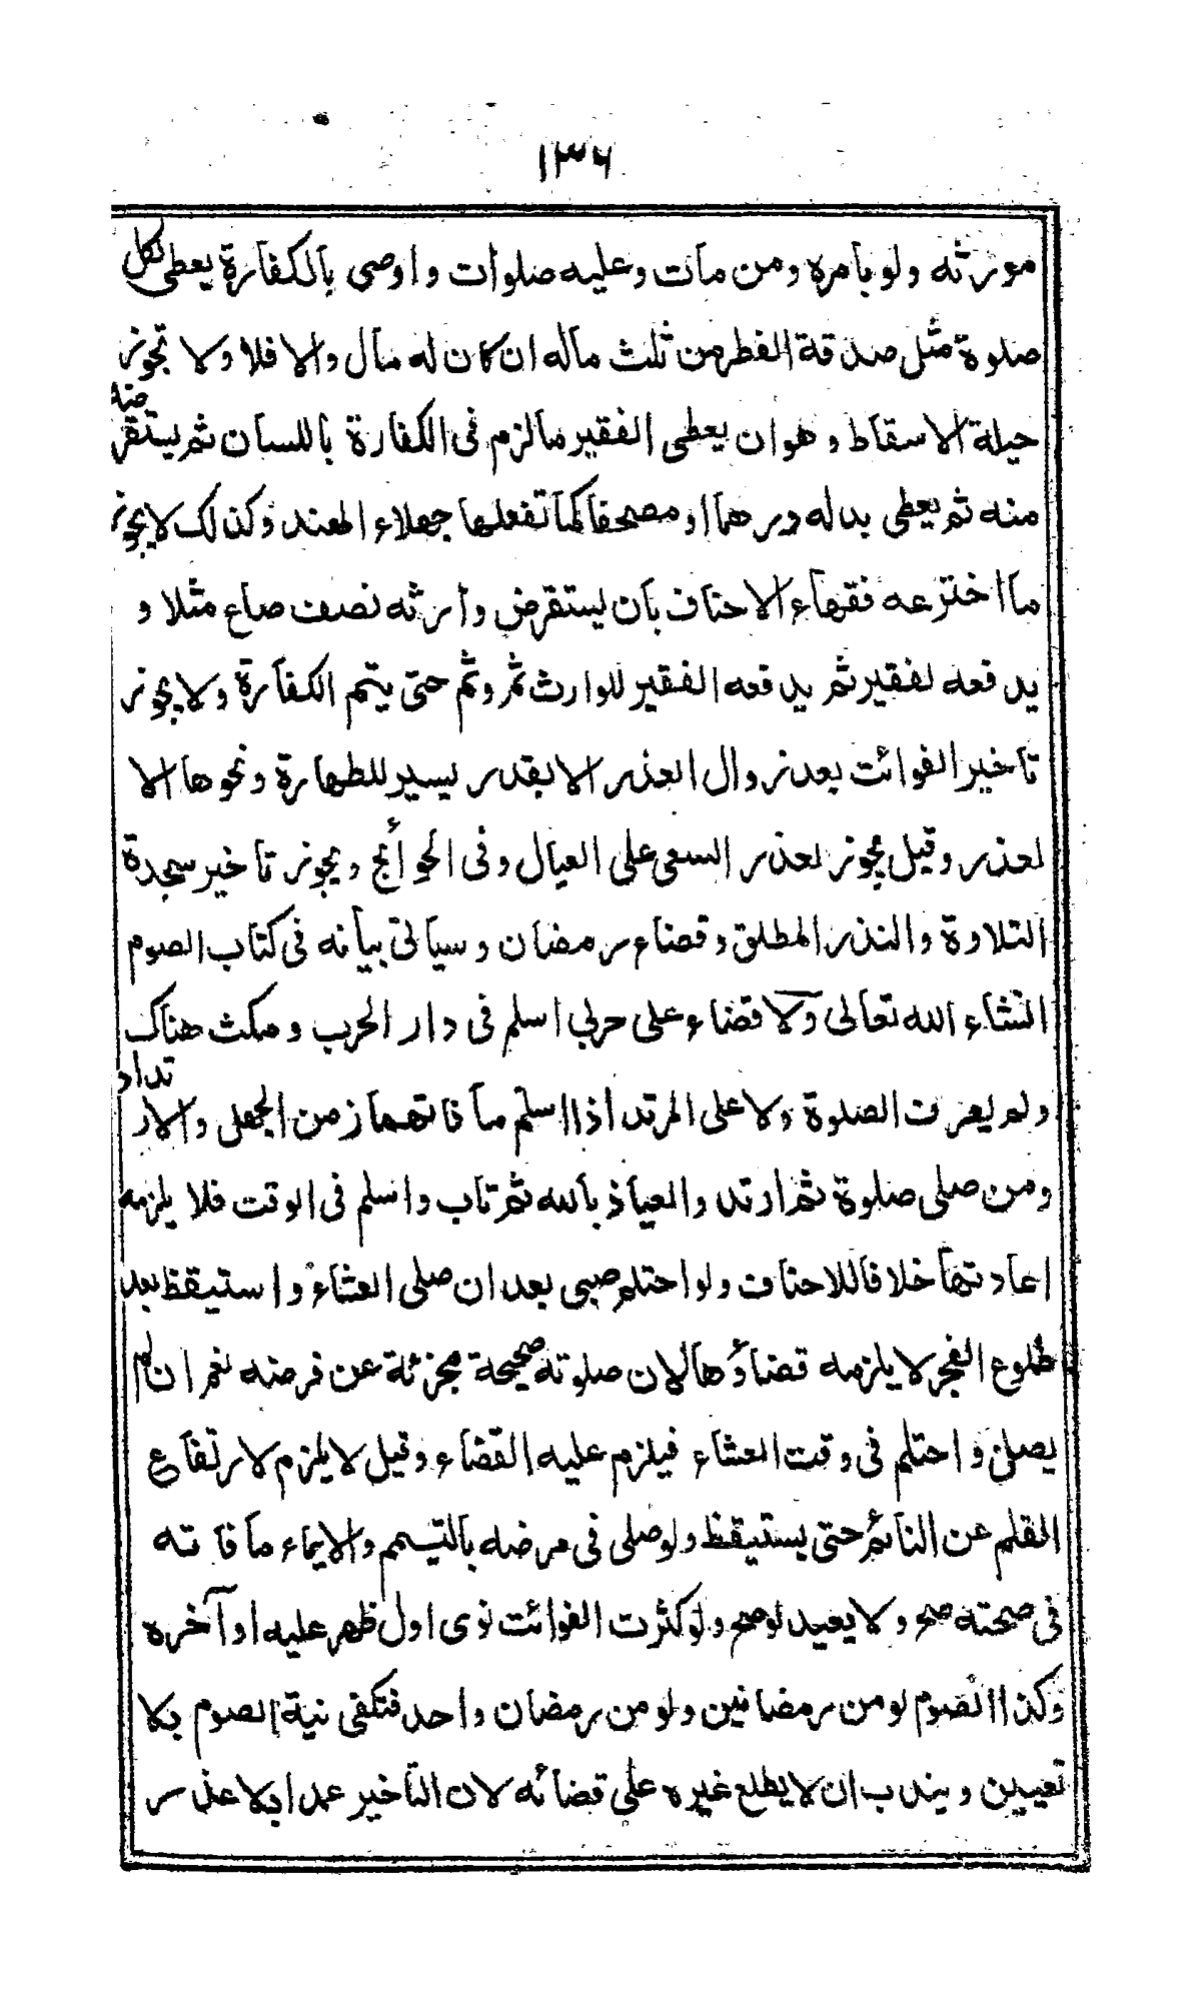 ١٣٦
مورثه ولو بامره ومن مات وعليه صلوات واوصى بالكفارة يعطى لكل
صلوة مثل صدقة الفطر من ثلث ماله ان كان له مال والا فلا ولا تجوز
حيلة الاسقاط وهو ان يعطى الفقير مالزم فى الكفارة باللسان ثم يستقرضه
منه ثم يعطى بدله درهما او مصحفا كما تفعلها جهلاء الهند وكذالك لا يجوز
ما اخترعه فقهاء الاحناف بان يستقرض وارثه نصف صاع مثلا و
يدفعه لفقير ثم يدفعه الفقير للوارث ثم وثم حتى يتم الكفارة ولا يجوز
تاخير الفوائت بعد زوال العذر الا بقدر يسير للطهارة ونحوها الا
لعذر وقيل يجوز لعذر السعى على العيال وفى الحوائج ويجوز تاخير سجدة
التلاوة والنذر المطلق وقضاء رمضان وسياتى بيانه فى كتاب الصوم
انشاء الله تعالى ولا قضاء على حربى اسلم فى دار الحرب ومكث هناك
ولم يعرف الصلوة ولا على المرتد اذا اسلم ما فاتهما زمن الجهل والارتداد
ومن صلى صلوة ثم ارتد والعياذ بالله ثم تاب واسلم فى الوقت فلا يلزمه
اعادتها خلافا للاحناف ولو احتلم صبى بعد ان صلى العشاء واستيقظ بعد
طلوع الفجر لا يلزمه قضاؤها لان صلوته صحيحة مجزئة عن فرضه نعم ان لم
يصل واحتلم فى وقت العشاء فيلزم عليه القضاء وقيل لا يلزم لارتفاع
القلم عن النائم حتى يستيقظ ولو صلى فى مرضه بالتيمم والايماء ما فاته
فى صحته صح ولا يعيد لو صح ولو كثرت الفوائت نوى اول ظهر عليه او آخره
وكذا الصوم لو من رمضانين ولو من رمضان واحد فتكفى نية الصوم بلا
تعيين ويندب ان لا يطلع غيره على قضائه لان التاخير عمدا بلا عذر